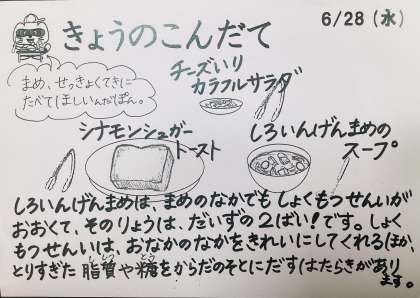 6/28(水)
きょうのこんだて
まめ、せっきょくてきに
たべてほしいんだぽん。
チーズいり
カラフルサラダ
シナモンシュガー
トースト
しろいんげんまめの
スープ
しろいんげんまめは、まめのなかでも しょくもつせんいが
おおくて、そのりょうは、だいずの2ばい!です。しょく
もつせんいは、おなかのなかをきれいにしてくれるほか、
とりすぎた 脂質や糖をからだのそとにだすはたらきがあり
ます。